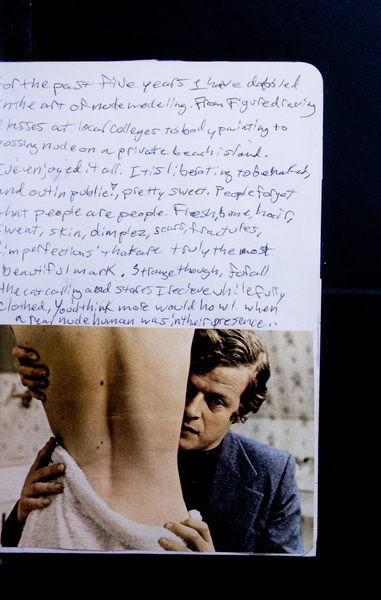 For the past five years I have dabbled
in the art of nude modeling. From Figure drawing
classes at local colleges to body painting to
possing nude on a private beach island.
I've enjoyed it all. It is liberating to be naked,
and out in "public", pretty sweet. People forget
that people are people. Flesh, bone, hair,
sweat, skin, dimplez, scars, fractures,
"imperfections" that are truly the most
beautiful mark. Strange though, for all
the cat calling and stares I recieve while fully
clothed, you'd think more would howl when
a real nude human was in their presence..